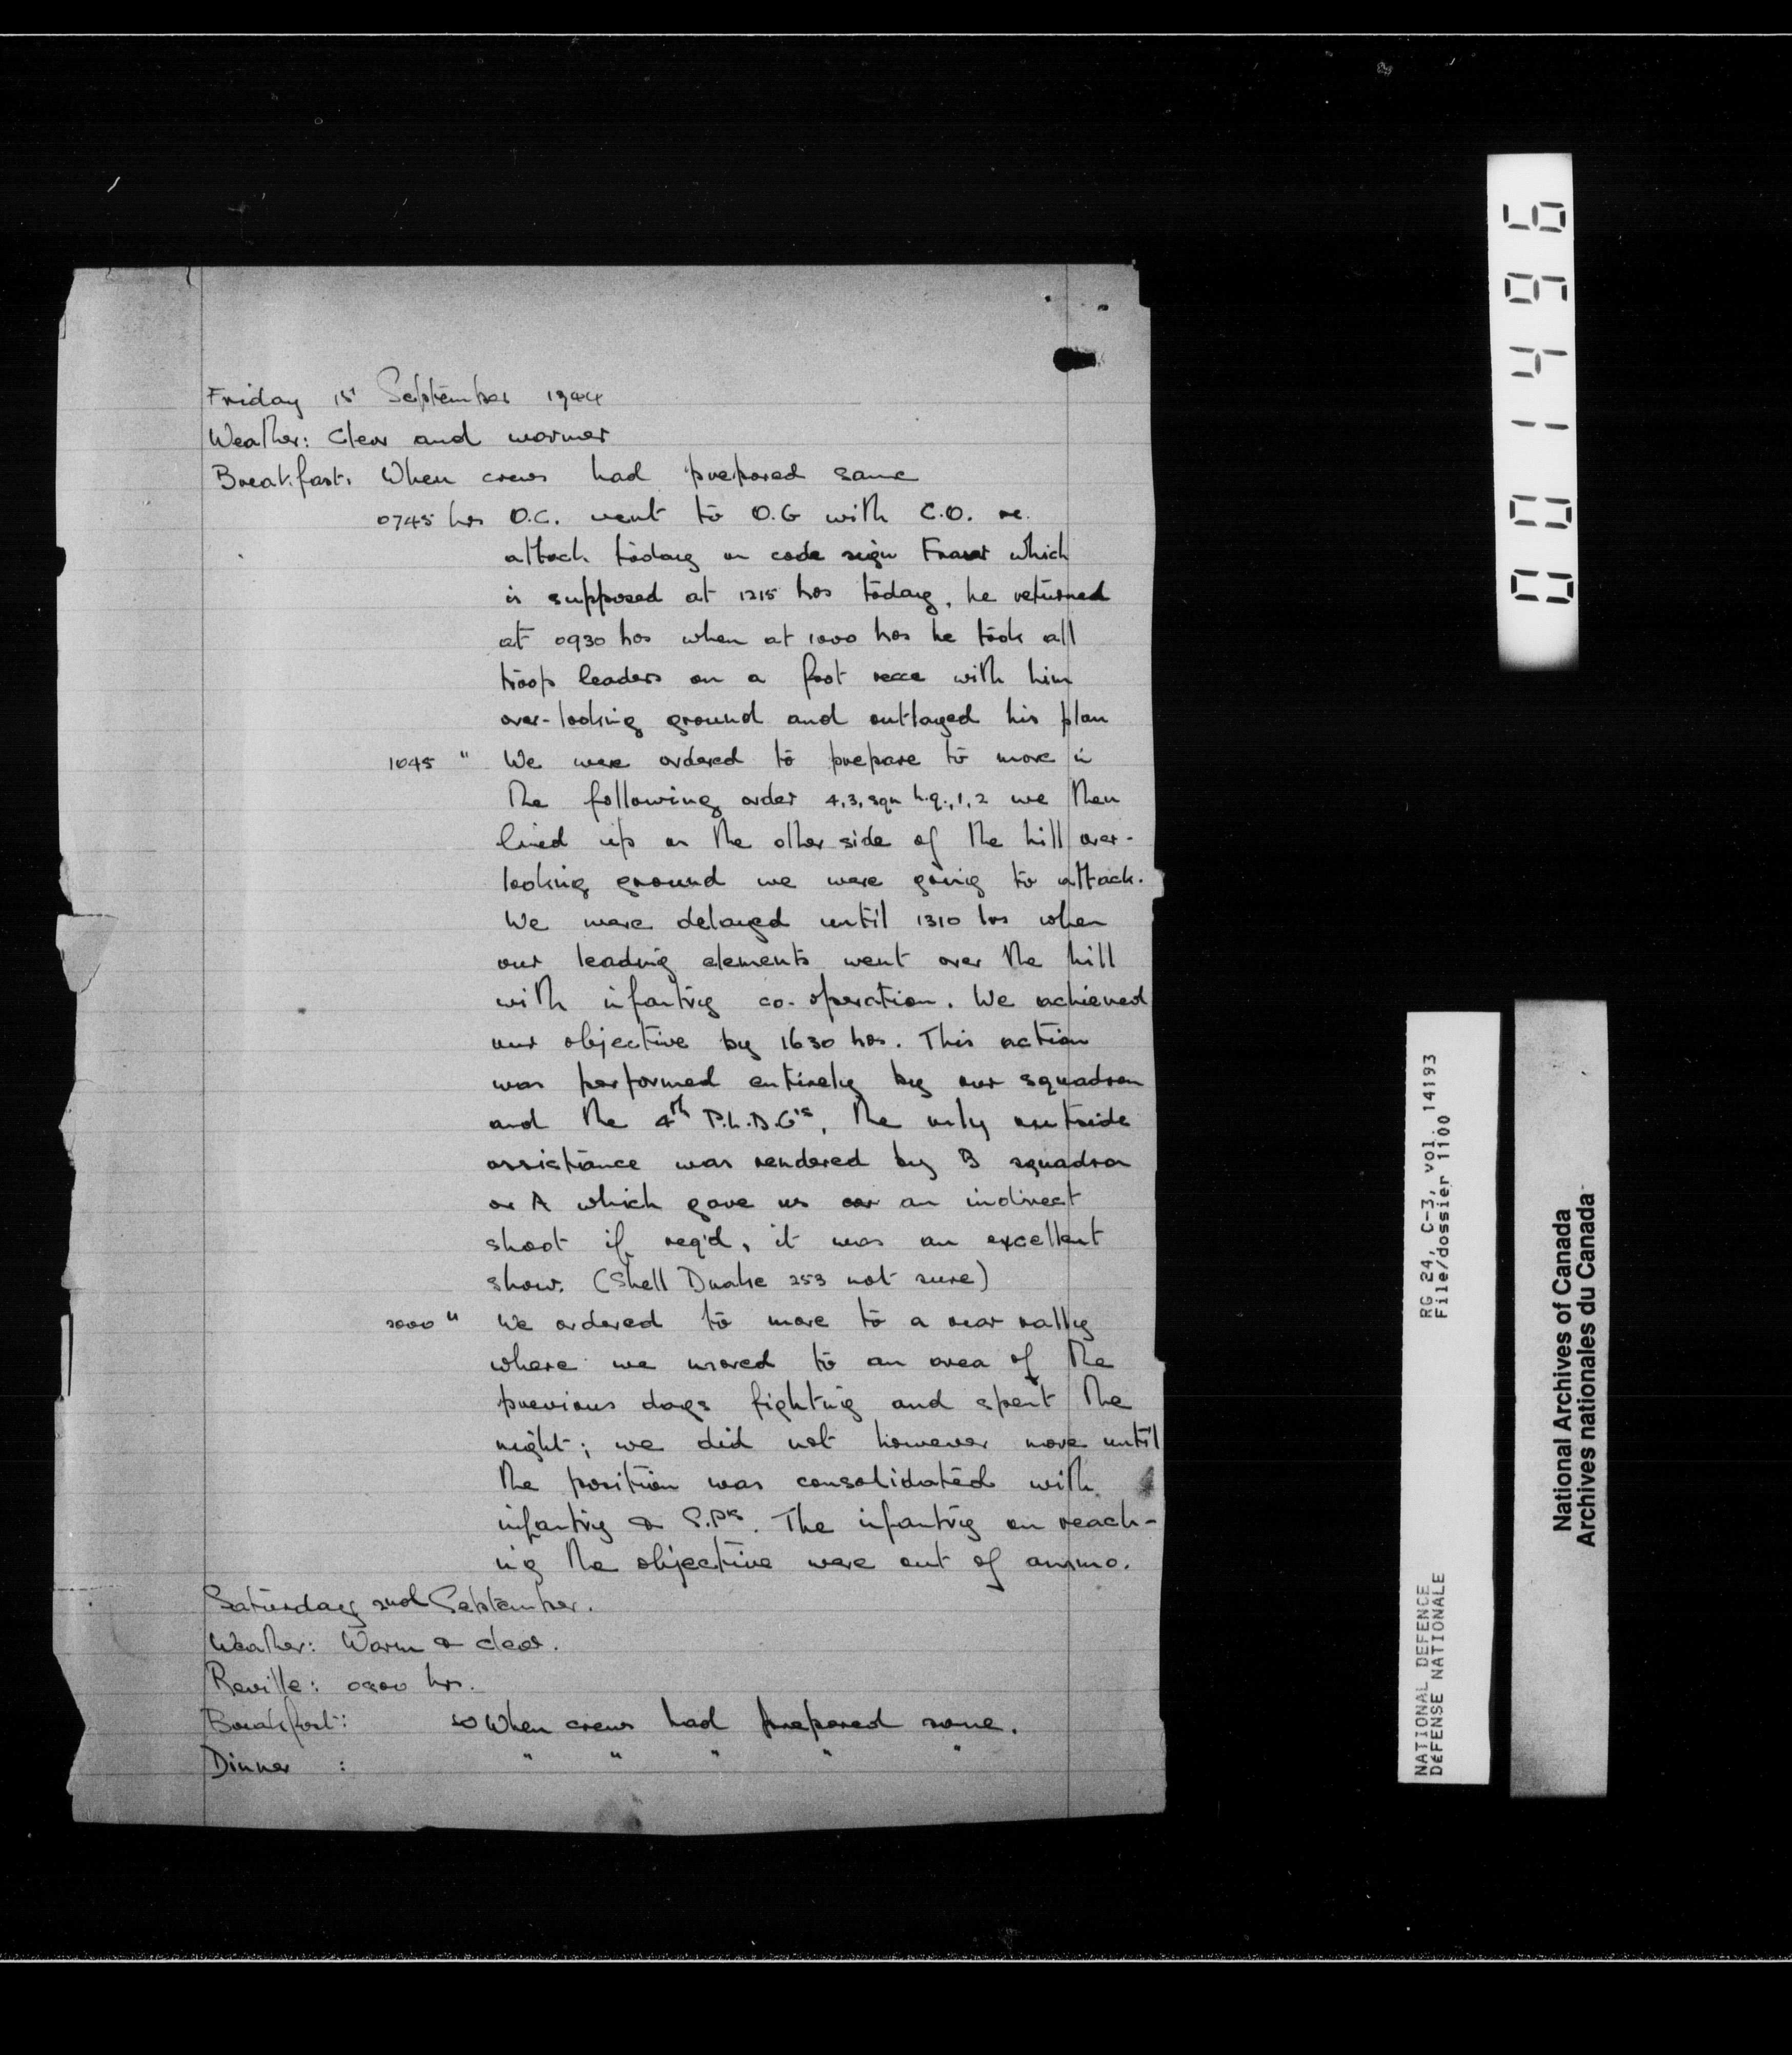 Friday 1st September 1944
Weather: Clear and warmer
Breakfast: When crews had prepared same
0745 hrs O.C. went to O.G with C.O. re.
attack today on code sign which
is supposed at 1215 hrs today, he returned
at 0930 hrs when at 1000 hrs he took all
troop leaders on a foot recce with him
over-looking ground and outlayed his plan
1045 " We were ordered to prepare to move in
the following order 4,3, sqn h.q., 1, 2 we then
lined up on the other side of the hill over-
looking ground we were going to attack.
We were delayed until 1310 hrs when
our leading elements went over the hill
with infantry co-operation. We achieved
our objective by 1630 hrs. This action
was performed entirely by our squadron
and the 4th P.L.D.G's, the only outside
assistance was rendered by B squadron
or A which gave us an indirect
shoot if req'd, it was an excellent
show. (Shell Drake 253 not sure)
2000 " We ordered to move to a rear rally
where we moved to an area of the
previous days fighting and spent the
night; we did not however move until
the position was consolidated with
infantry & S.Ps. The infantry on reach-
ing the objective were out of ammo.
Saturday 2nd September.
Weather: Warm & clear.
Reville: hrs.
Breakfast: When crews had prepared same.
Dinner : " " " " "
001496
RG 24, C-3, vol. 14193
File/dossier 1100
NATIONAL DEFENCE
DÉFENSE NATIONALE
National Archives of Canada
Archives nationales du Canada